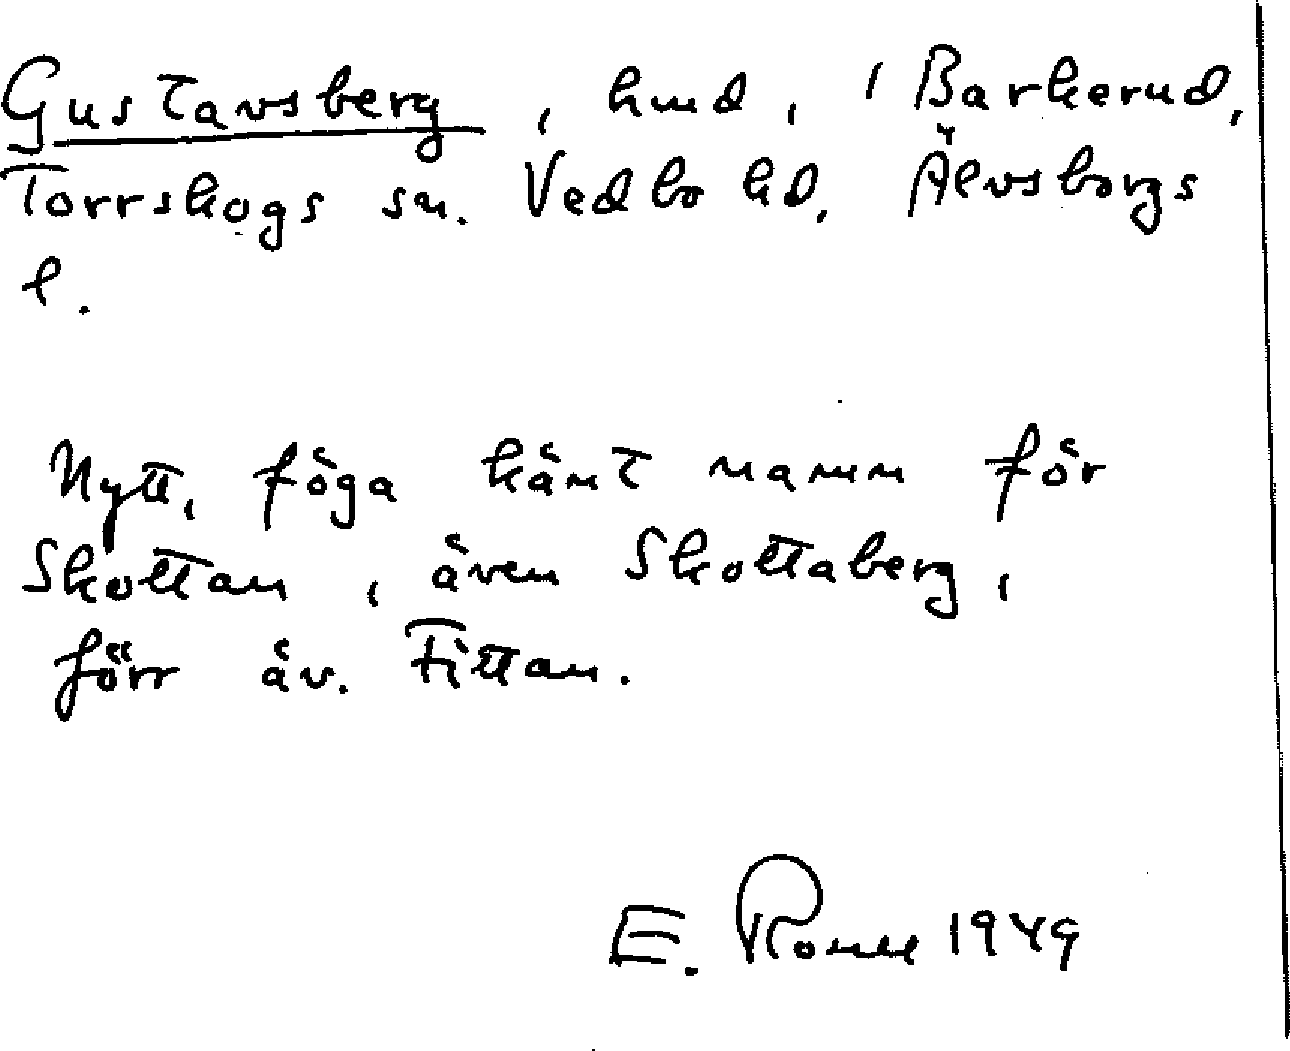 Gustavsberg, hmd, i Barkerud,
Torrskogs sn. Vedbo hd, Älvsborgs
l.
Nytt, föga känt namn för
Skottan, även Skottaberg,
förr äv. Fittan.
E. 1949